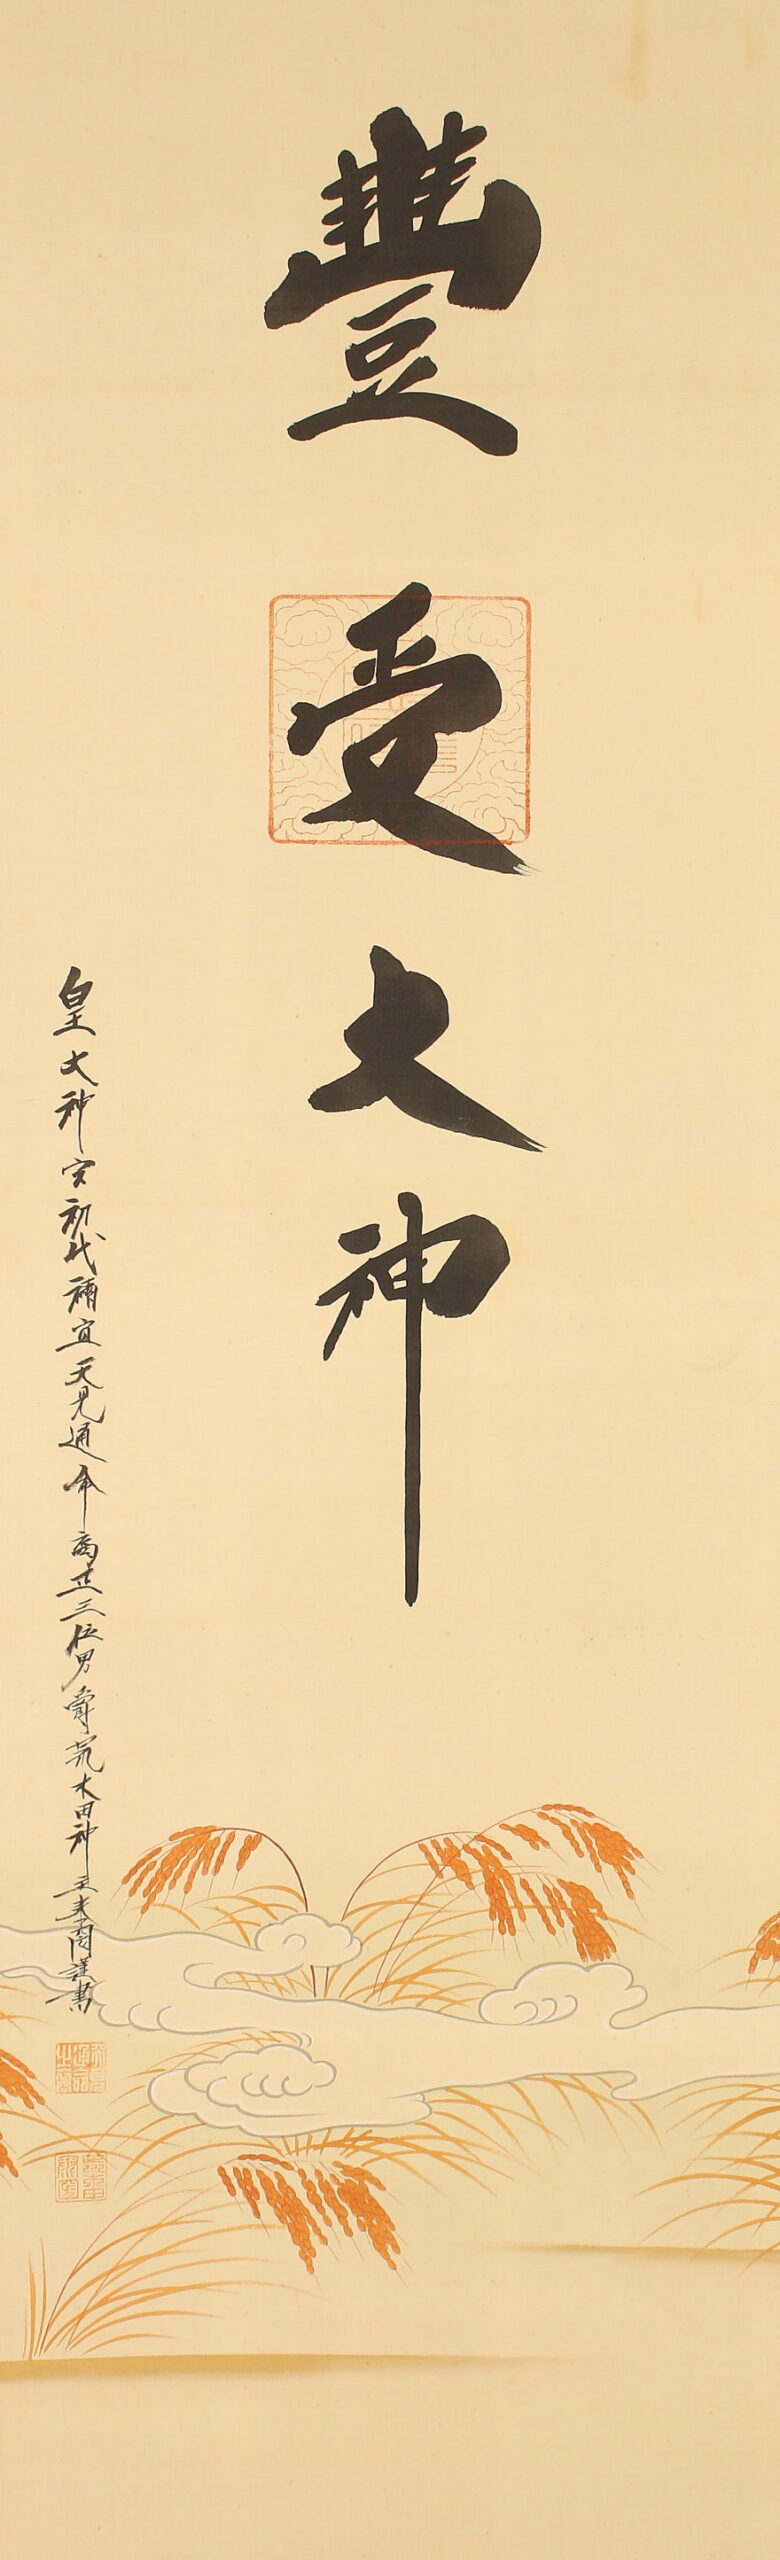 豐受大神
皇大神宮初代禰宜天見通命裔正三位男爵荒木田神主末閏謹書